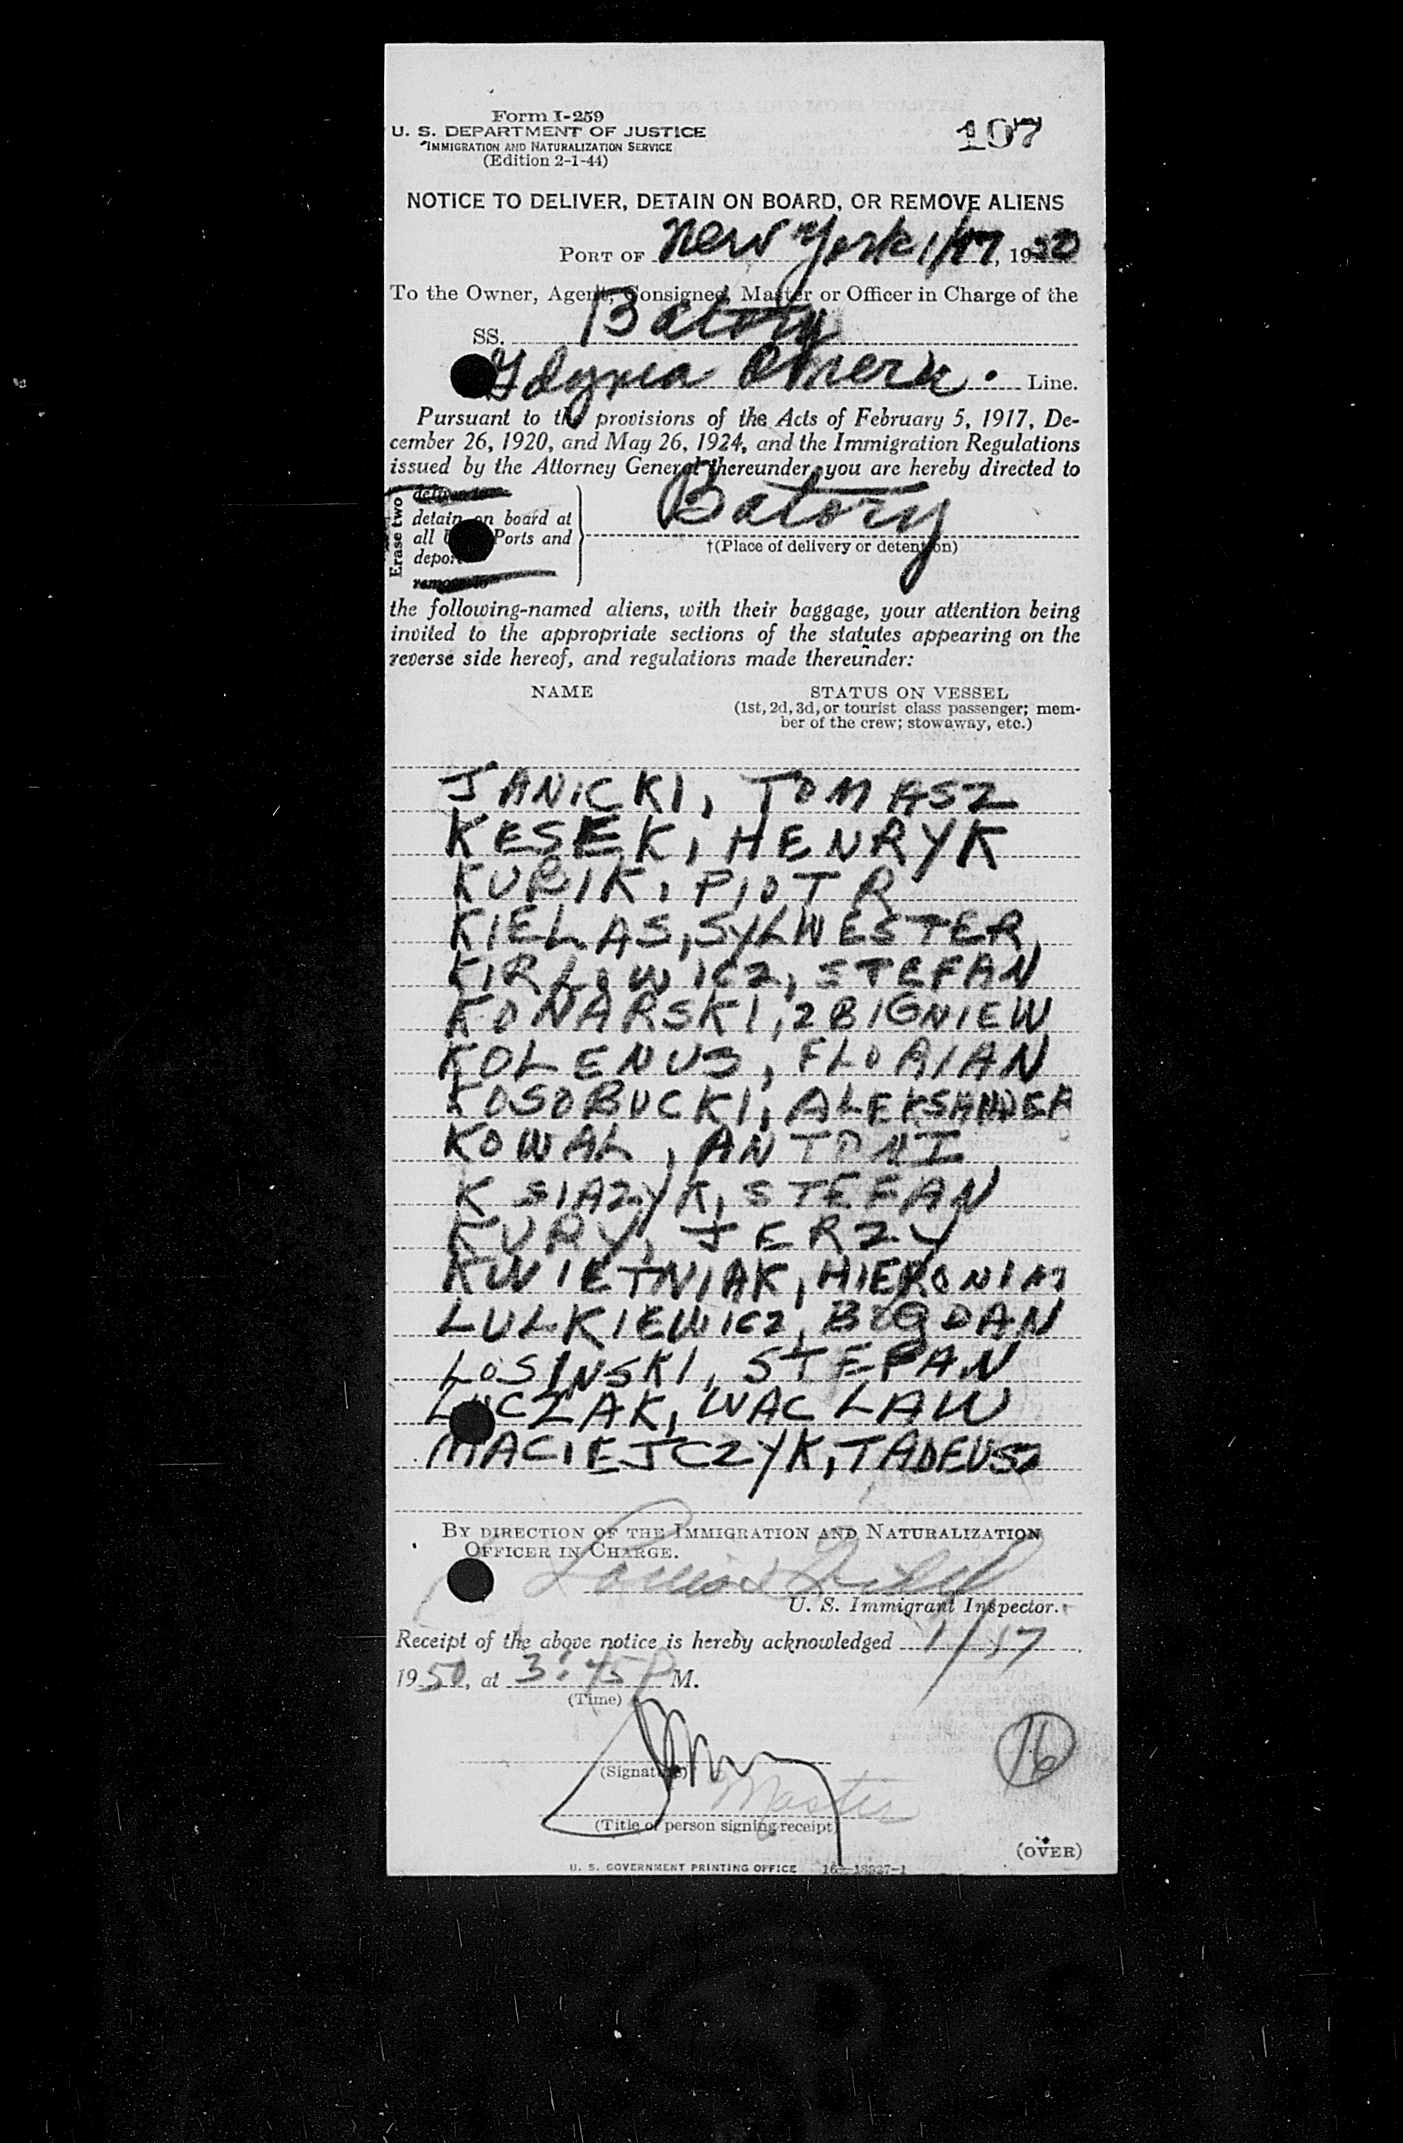 Form I-259
U. S. DEPARTMENT OF JUSTICE
IMMIGRATION AND NATURALIZATION SERVICE
(Edition 2-1-44)
107
NOTICE TO DELIVER, DETAIN ON BOARD, OR REMOVE ALIENS
PORT OF New York 1/17, 1950
To the Owner, Agent, Consignee, Master or Officer in Charge of the
SS. Batory
Gdynia Line.
Pursuant to the provisions of the Acts of February 5, 1917, De-
cember 26, 1920, and May 26, 1924, and the Immigration Regulations
issued by the Attorney General thereunder, you are hereby directed to
Erase two
deliver to
detain on board at
all Ports and
deport
remove to
Batory
†(Place of delivery or detention)
the following-named aliens, with their baggage, your attention being
invited to the appropriate sections of the statutes appearing on the
reverse side hereof, and regulations made thereunder:
NAME
STATUS ON VESSEL
(1st, 2d, 3d, or tourist class passenger; mem-
ber of the crew; stowaway, etc.)
JANICKI, TOMASZ
KESEK, HENRYK
KUBIK, PIOTR
KIELAS, SYLWESTER,
KIRLOWICZ, STEFAN
KONARSKI, ZBIGNIEW
KOLENUS, FLORIAN
KOSOBUCKI, ALEKSANDER
KOWAL, ANTONI
KSIAZYK, STEFAN
KURY, JERZY
KWIETNIAK, HIERONIM
LULKIEWICZ, BOGDAN
LOSINSKI, STEFAN
LUCZAK, WACLAW
MACIEJCZYK, TADEUSZ
BY DIRECTION OF THE IMMIGRATION AND NATURALIZATION
OFFICER IN CHARGE.
U. S. Immigrant Inspector.
Receipt of the above notice is hereby acknowledged 1/17
1950, at 3:45 P M.
(Time)
(Signature)
Master
(Title of person signing receipt)
16
(OVER)
U. S. GOVERNMENT PRINTING OFFICE 16-18927-1